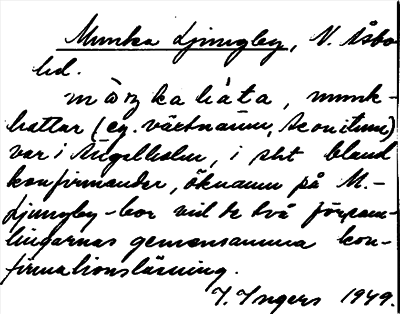 Munka Ljungby, N. Åsbo
hd.
måŋkaháta, munk-
hattar (eg. växtnamn, Aconitum)
var i Ängelholm, i sht bland
konfirmander, öknamn på M.-
Ljungby-bor vid de två försam-
lingarnas gemensamma kon-
firmationsläsning.
I. Ingers 1949.